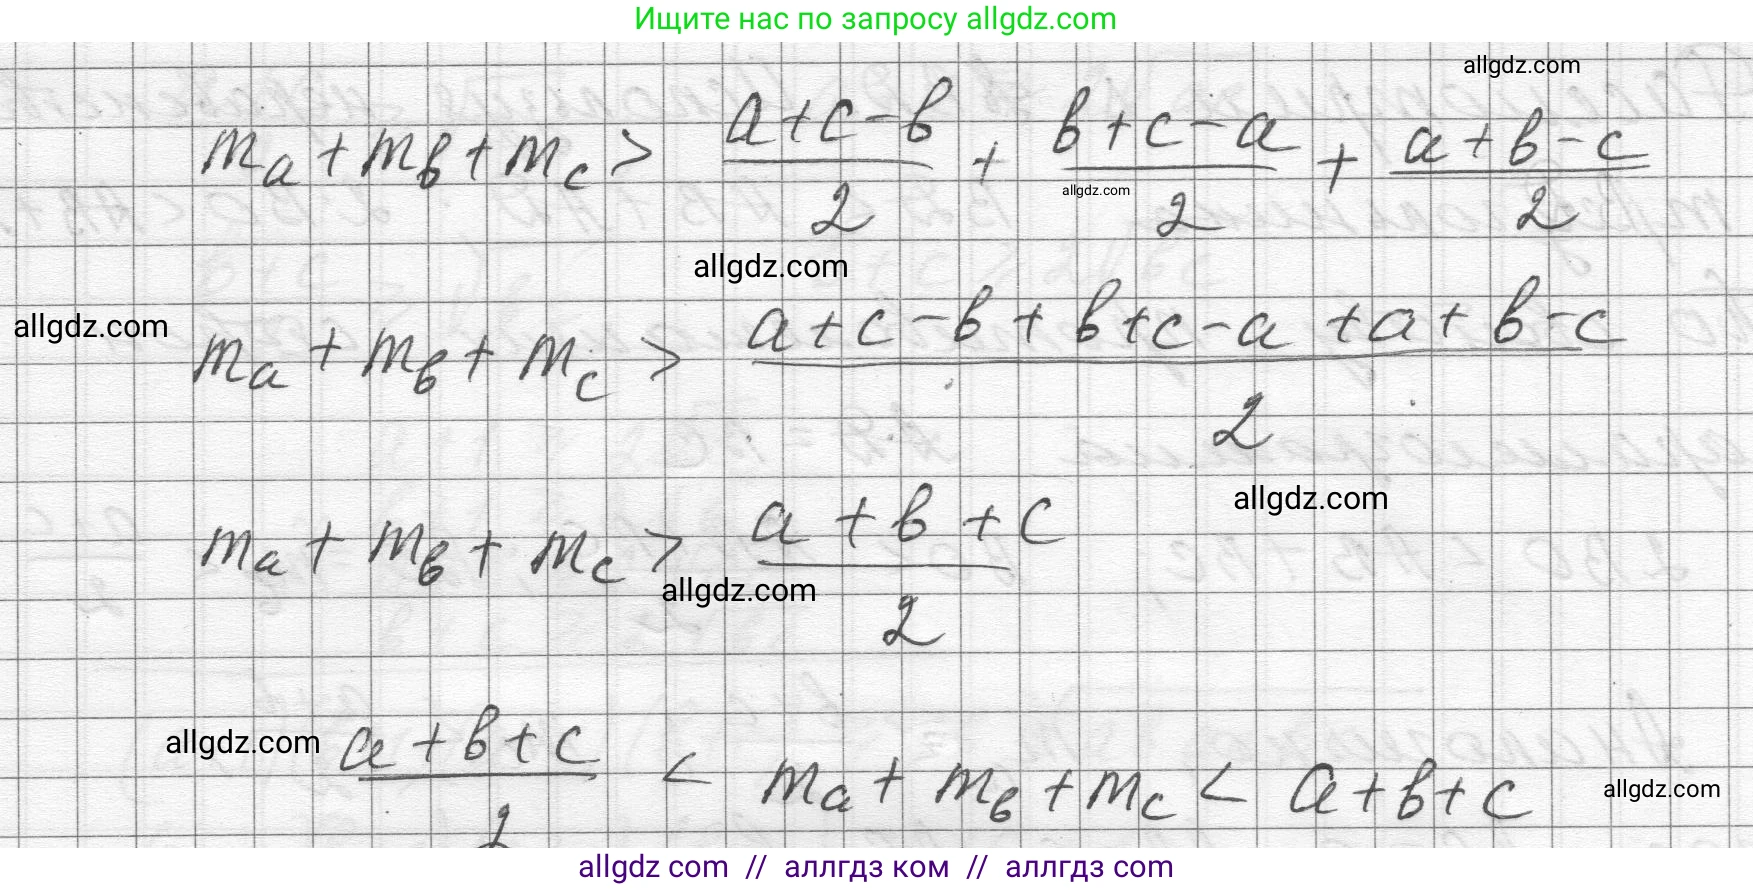 Ищите нас по запросу allgdz.com
allgdz.com
mₐ + m_в + m_c > (a+c-в)/2 + (в+c-a)/2 + (a+в-c)/2
allgdz.com
allgdz.com
allgdz.com
mₐ + m_в + m_c > (a+c-в+в+c-a+a+в-c)/2
allgdz.com
mₐ + m_в + m_c > (a+в+c)/2
allgdz.com
allgdz.com
(a+в+c)/2 < mₐ + m_в + m_c < a+в+c
allgdz.com
allgdz com // аллгдз ком // аллгдз com